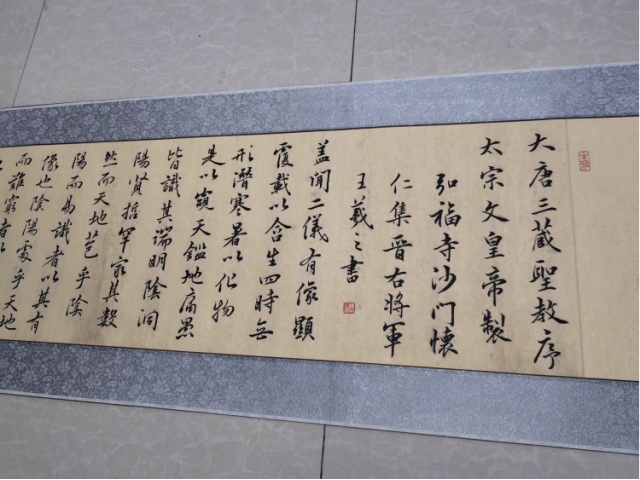 大唐三蔵聖教序
太宗文皇帝製
弘福寺沙门懐
仁集晋右將軍
王羲之書
盖聞二儀有像顯
覆載以含生四時无
形潛寒暑以化物
是以窺天鑑地庸愚
皆識其端明陰洞
陽賢哲罕窮其數
然而天地苞乎陰
陽而易識者以其有
像也陰陽處乎天地
而難窮者以